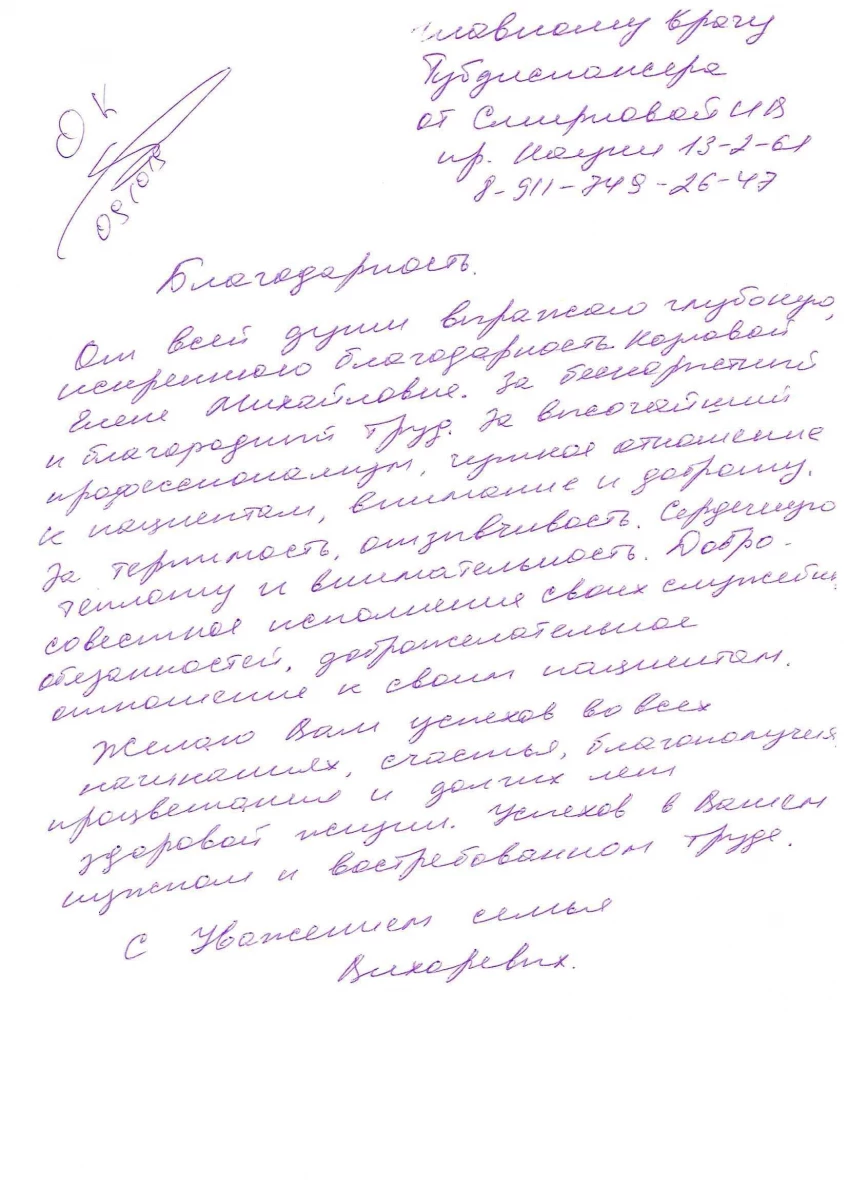 Главному врачу
Тубдиспансера
от Смирновой И В
пр. Науки 13-2-61
8-911-749-26-47
ОК
Благодарность.
От всей души выражаю глубокую,
искреннюю благодарность Козловой
Елене Михайловне. За бескорыстный
и благородный труд. За высочайший
профессионализм, чуткое отношение
к пациентам, внимание и доброту.
За терпимость, отзывчивость. Сердечную
теплоту и внимательность. Добро-
совестное исполнение своих служебн
обязанностей, доброжелательное
отношение к своим пациентам.
Желаю Вам успехов во всех
начинаниях, счастья, благополучия,
процветания и долгих лет
здоровой жизни. Успехов в Вашем
нужном и востребованном труде.
С Уважением семья
Вихаревых.